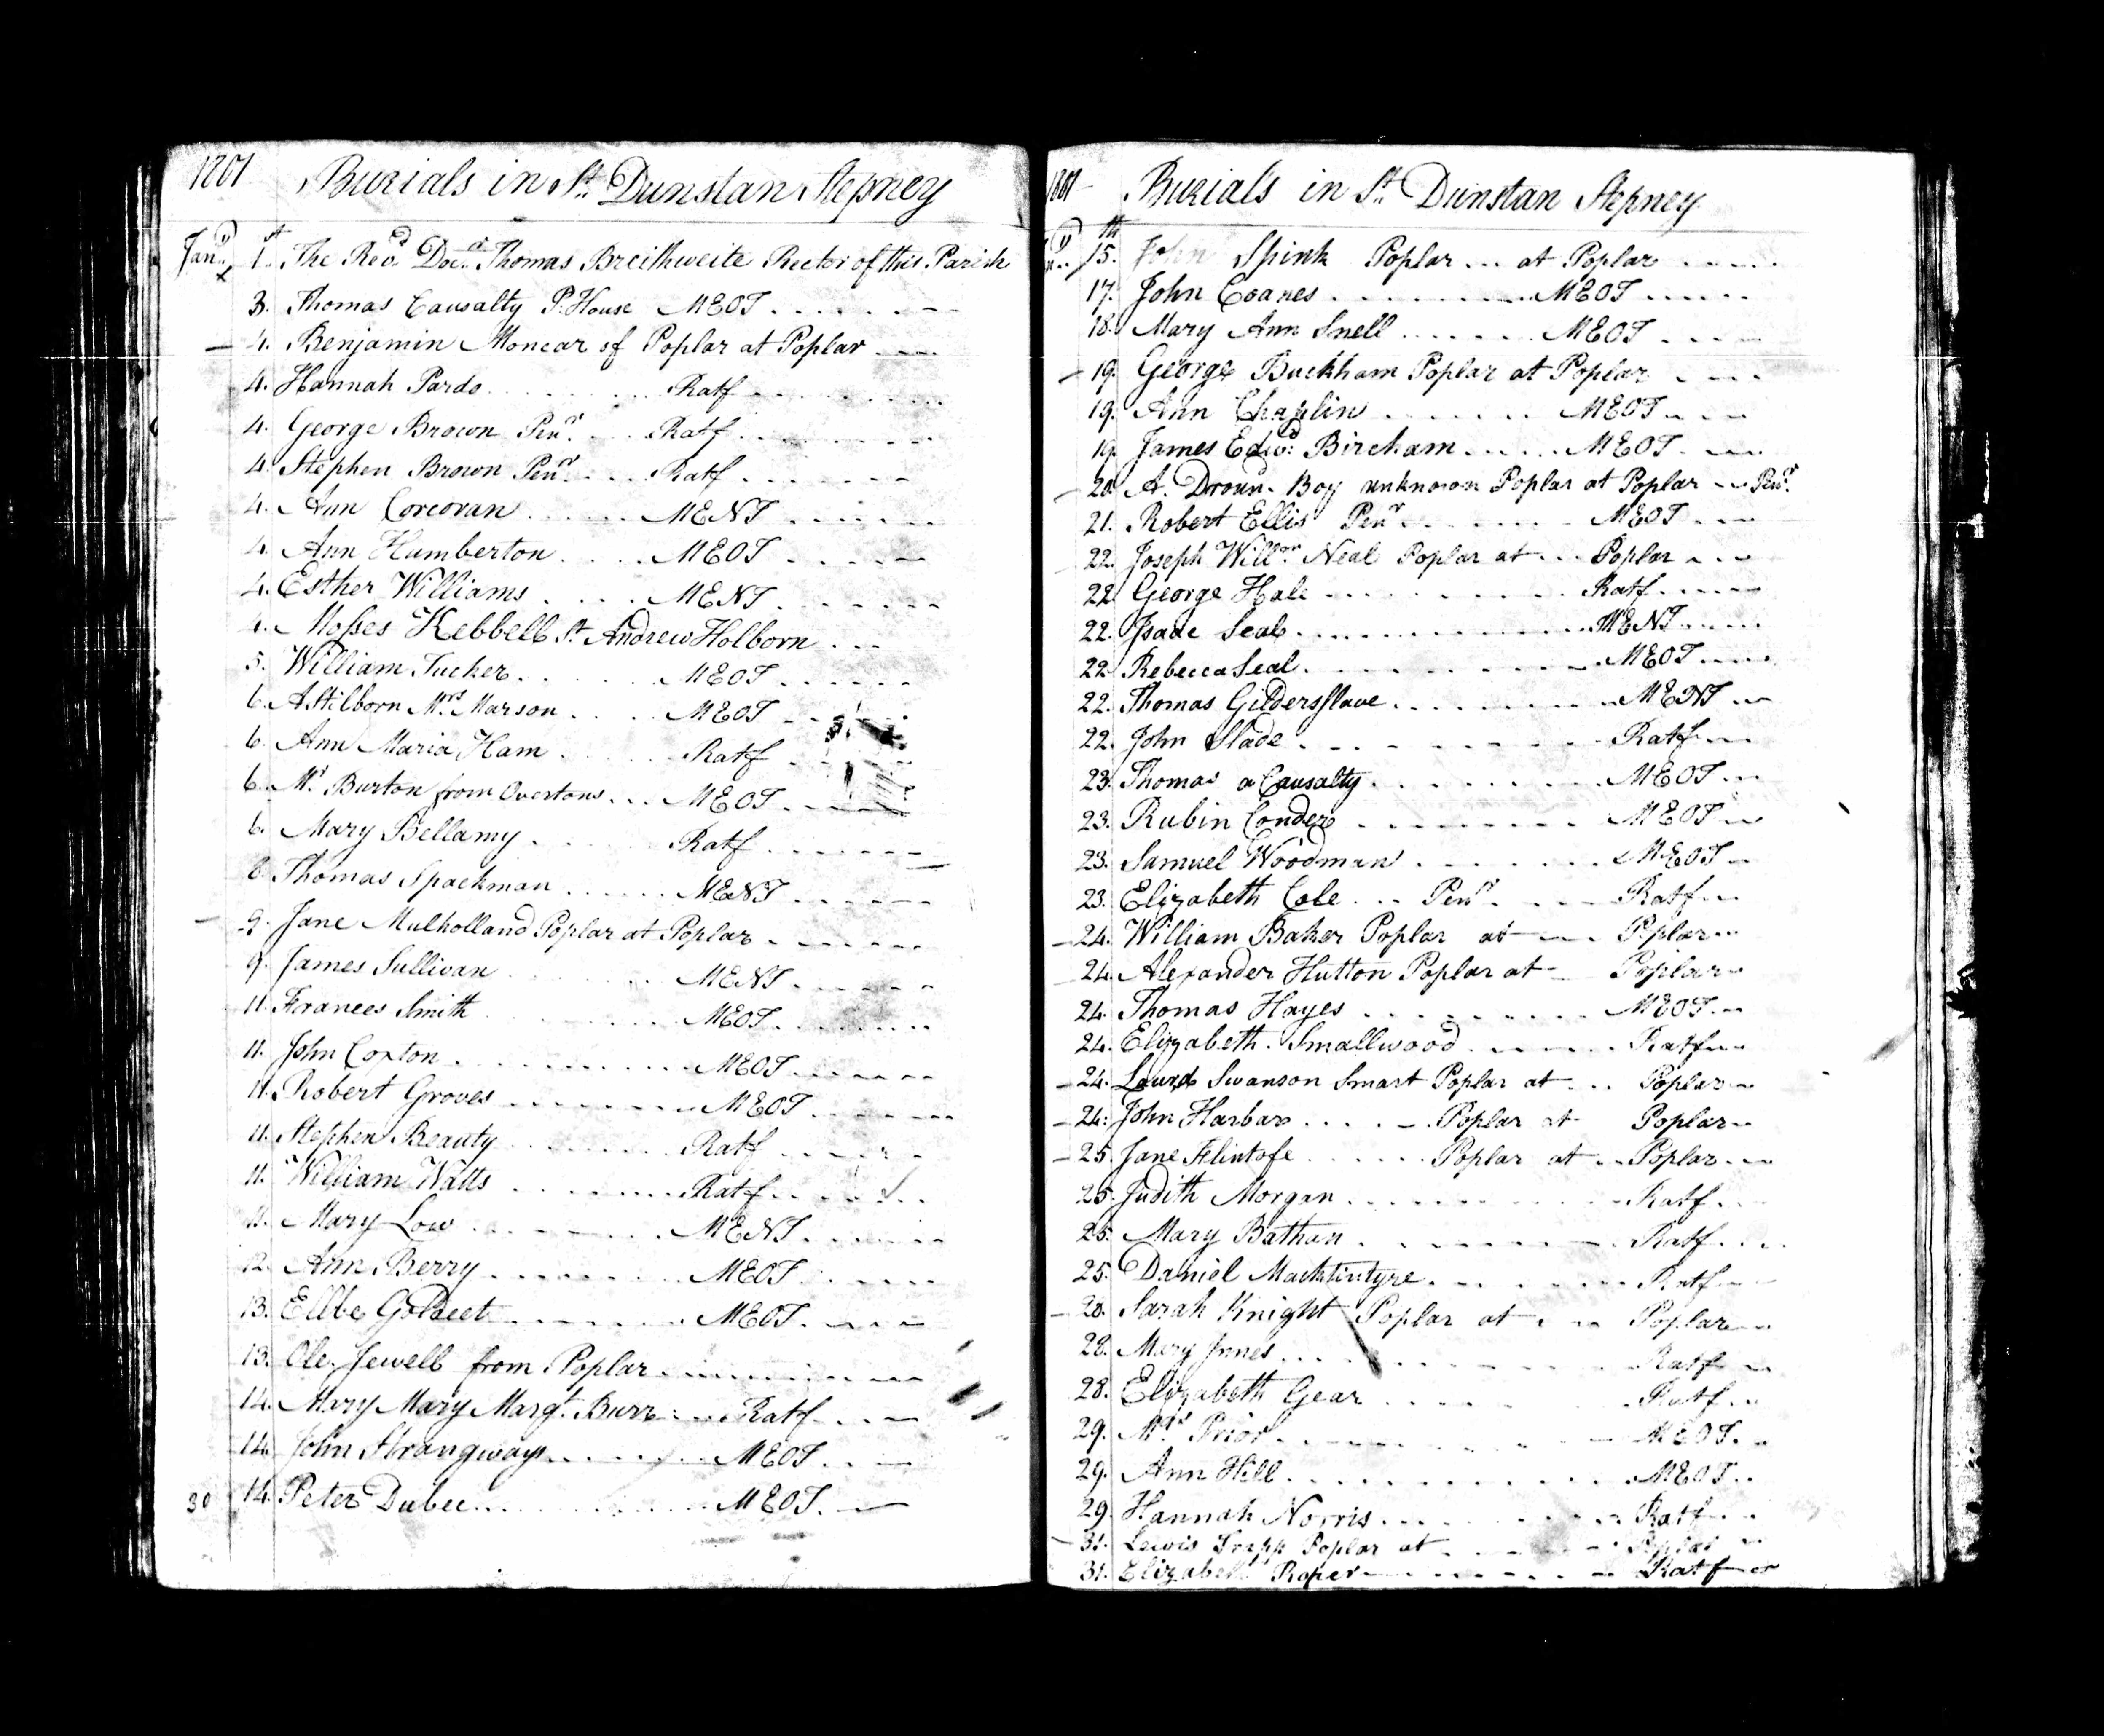 1801 Burials in St. Dunstan Stepney
Jany. 1st. The Revd. Docr. Thomas Breithweite Rector of this Parish
3. Thomas Causalty P. House MEOT
4. Benjamin Moncar of Poplar at Poplar
4. Hannah Pardo Ratf
4. George Brown Penr. Ratf
4. Stephen Brown Penr. Ratf
4. Ann Corcoran MENT
4. Ann Humberton MEOT
4. Esther Williams MENT
4. Moses Kebbell St. Andrew Holborn
5. William Tucker MEOT
6. A Stilborn Mrs. Marson MEOT
6. Ann Maria Ham Ratf
6. Mr. Burton from Overtons MEOT
6. Mary Bellamy Ratf
8. Thomas Spackman MENT
9. Jane Mulholland Poplar at Poplar
9. James Sullivan MENT
11. Frances Smith MEOT
11. John Coxton MEOT
11. Robert Groves MEOT
11. Stephen Beauty Ratf
11. William Watts Ratf
11. Mary Low MENT
12. Ann Berry MEOT
13. Ellbe MEOT
13. Ole Jewell from Poplar
14. Mary Mary Margt. Burr Ratf
14. John Strangways MEOT
30 14. Peter Dubee MEOT
1801 Burials in St. Dunstan Stepney
15th. John Spink Poplar at Poplar
17. John Coanes MEOT
18. Mary Ann Snell MEOT
19. George Buckham Poplar at Poplar
19. Ann Chaplin MEOT
19. James Edwd. Bircham MEOT
20. A. Droun. Boy unknown Poplar at Poplar Penr.
21. Robert Ellis Penr. MEOT
22. Joseph Willm. Neal Poplar at Poplar
22. George Hale Ratf
22. Isaac Seal MENT
22. Rebecca Seal MEOT
22. Thomas Gilderslave MENT
22. John Slade Ratf
23. Thomas a Causalty MEOT
23. Rubin Conder MEOT
23. Samuel Woodman MEOT
23. Elizabeth Cole Penr. Ratf
24. William Baker Poplar at Poplar
24. Alexander Hutton Poplar at Poplar
24. Thomas Hayes MEOT
24. Elizabeth Smallwood Ratf
24. Swanson Smart Poplar at Poplar
24. John Harbar Poplar at Poplar
25. Jane Flintofe Poplar at Poplar
25. Judith Morgan Ratf
25. Mary Bathan Ratf
25. Daniel Macktintyre Ratf
28. Sarah Knight Poplar at Poplar
28. Mary Innes Ratf
28. Elizabeth Gear Ratf
29. Mrs. Prior MEOT
29. Ann Hill MEOT
29. Hannah Norris Ratf
31. Lewis Trapp Poplar at Poplar
31. Elizabeth Roper Ratf